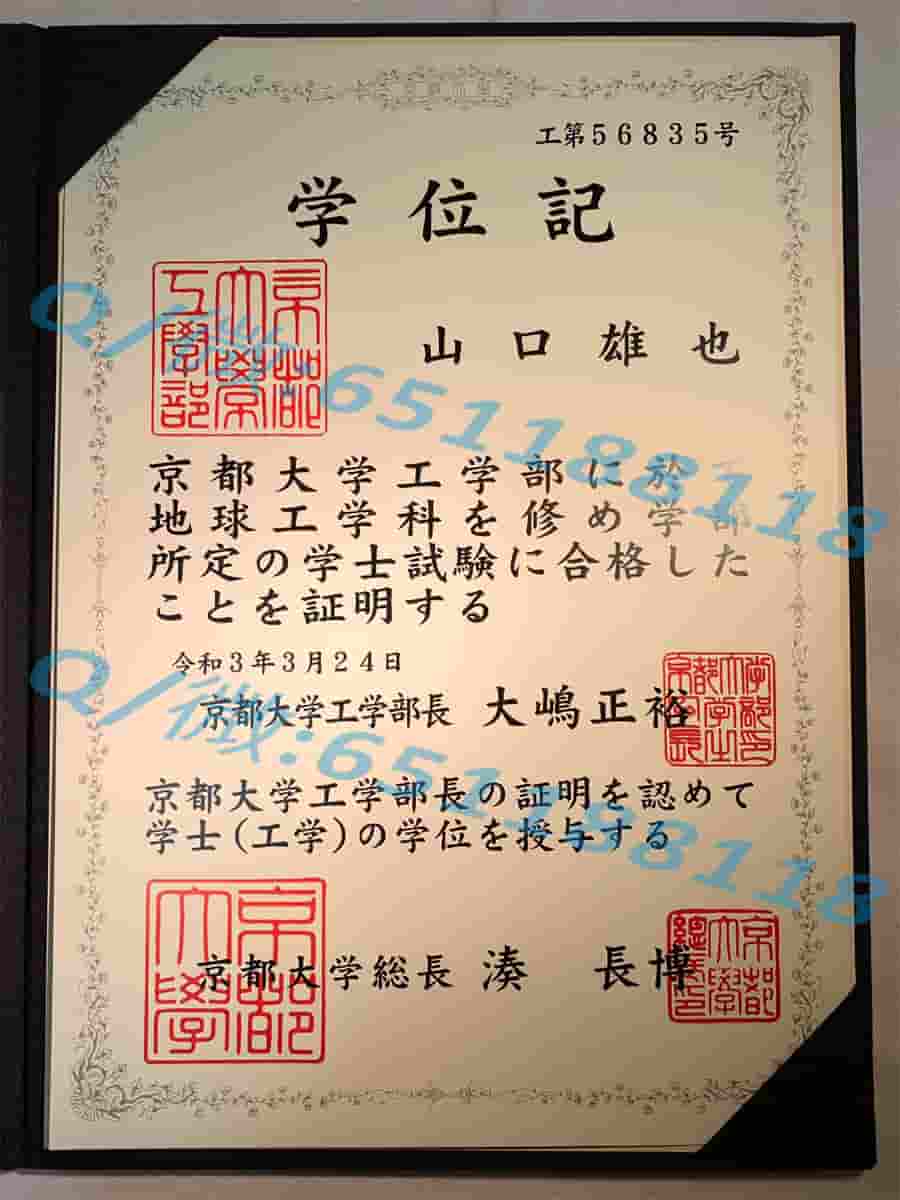 工第56835号
学位記
山口雄也
京都大学工学部
京都大学工学部に於
地球工学科を修め学部
所定の学士試験に合格した
ことを証明する
令和3年3月24日
京都大学工学部長 大嶋正裕
京都大学工学部長の証明を認めて
学士(工学)の学位を授与する
京都大学総長 湊 長博
京都大学
Q/微:65118118
Q/微:65118118